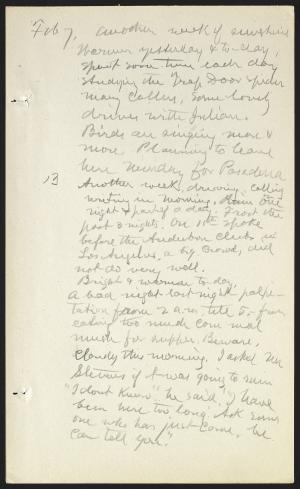 Feb 7, Another week of sunshine
Warmer yesterday & to-day,
Spent some time each day
studying the Trap Door spider
many Callers, some lovely
drives with Julian.
Birds are singing more &
more Planning to leave
here Monday for Pasadena
13 Another week, driving, calling
writing in morning. Rain one
night & part of a day. Frost the
past 3 nights. On 11th spoke
before the Audubon Club in
Los Angeles, a big crowd, did
not do very well.
Bright & warmer to-day.
A bad night last night, palpi-
tation from 2 a.m. till 5 - from
eating too much corn meal
mush for supper. Beware.
Cloudy this morning. I asked Mr
Stevens if it was going to rain
"I don't know" he said, "I have
been here too long. Ask some
one who has just come, he
can tell you."